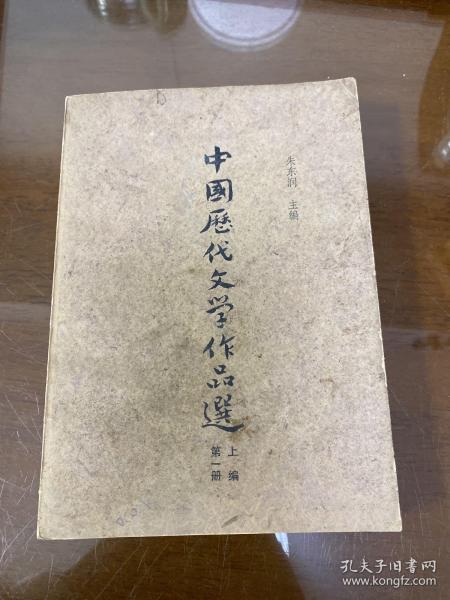 朱东润 主编
中國歷代文学作品選
上编
第一册
孔夫子旧书网
www.kongfz.com